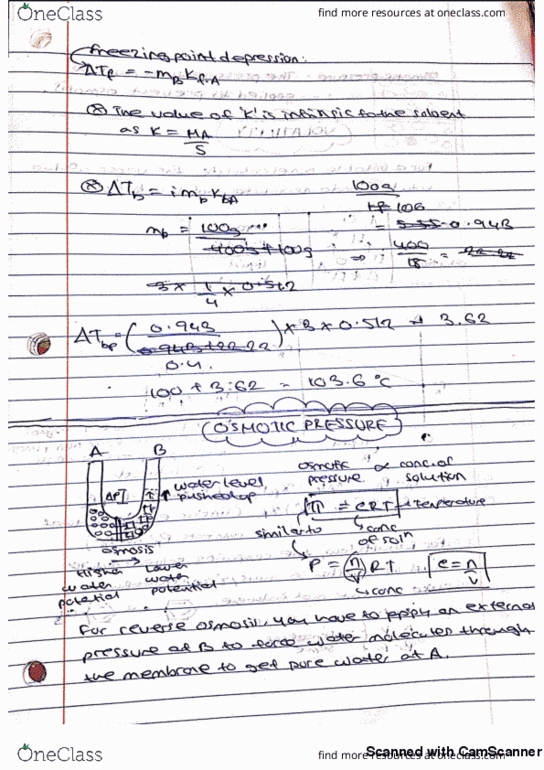 OneClass
find more resources at oneclass.com
Freezing point depression:
ΔTf = -mB Kf,A
⊗ The value of 'K' is intrinsic to the solvent
as K = MA/S
⊗ ΔTb = i mb KbA
100g
106
mb = 100g
400g + 100g
= 0.943
⇒ 400/18 =
3 × 1/4 × 0.512
ΔTbp = (0.943/0.4) × 3 × 0.512 → 3.62
0.943+22.22
100 + 3.62 = 103.6 °C
OSMOTIC PRESSURE
A B
ΔP
water level
pushed up
osmosis
Higher water potential
Lower water potential
osmotic pressure ∝ conc. of solution
Π = cRT → temperature
similar to
conc of soln
P = (n/V) RT
c = n/V
conc
For reverse osmosis, you have to apply an external
pressure at B to force water molecules through
the membrane to get pure water at A.
OneClass
find more resources at oneclass.com
Scanned with CamScanner